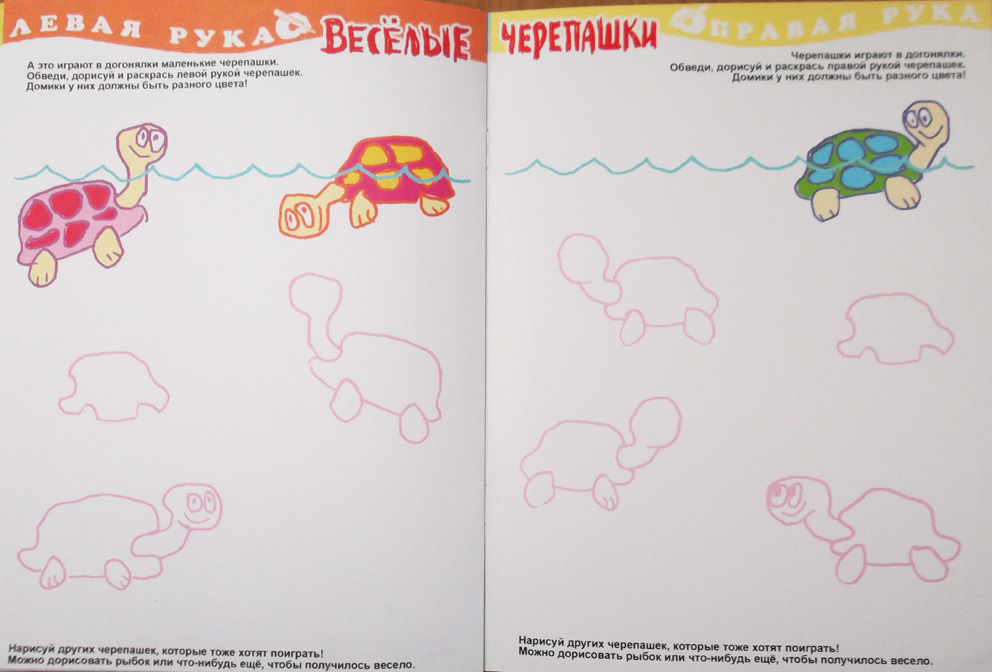 ЛЕВАЯ РУКА
ВЕСЁЛЫЕ
А это играют в догонялки маленькие черепашки.
Обведи, дорисуй и раскрась левой рукой черепашек.
Домики у них должны быть разного цвета!
Нарисуй других черепашек, которые тоже хотят поиграть!
Можно дорисовать рыбок или что-нибудь ещё, чтобы получилось весело.
ЧЕРЕПАШКИ
ПРАВАЯ РУКА
Черепашки играют в догонялки.
Обведи, дорисуй и раскрась правой рукой черепашек.
Домики у них должны быть разного цвета!
Нарисуй других черепашек, которые тоже хотят поиграть!
Можно дорисовать рыбок или что-нибудь ещё, чтобы получилось весело.